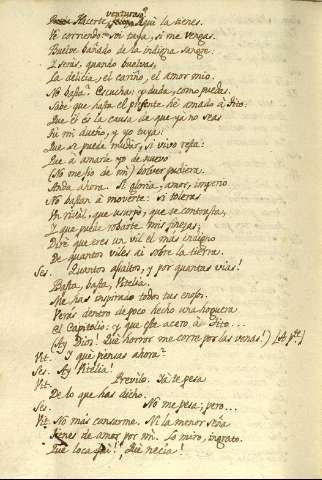 venturoso
Hacerte Aqui la tienes.
Vé corriendo. mi tuya, si me vengas.
Buelve bañado de la indigna sangre:
I serás, quando buelvas,
La delicia, el cariño, el amor mio.
No basta? Escucha: y duda, como puedes.
Sabe que hasta el presente hé amado à Tito:
Que él és la causa de que ya no seas
Tú mi dueño, y yo tuya:
Que se puede mudar, si vivo resta:
Que à amarle yo de nuevo
(No me fio de mi) bolver pudiera.
Anda ahora. Si gloria, amor, imperio
No bastan à moverte: Si toleras
Un rival, que usurpó, que te contrasta,
I que puede robarte mis finezas;
Diré que eres un vil el más indigno
De quantos viles ai sobre la tierra.
Ses. Quantos asaltos, y por quantas vias!
Basta, basta, Vitelia.
Me has inspirado todos tus enojos.
Verás dentro de poco hecho una hoguera
el Capitolio: y que este acero à Tito...
(Ay Dios! Que horror me corre por las venas!) [A pte]
Vit. I que piensas ahora?
Ses. Ay Vitelia!
Vit. Previlo. Yá te pesa
De lo que has dicho.
Ses. No me pesa; pero...
Vit. No más cansarme. Ni la menor seña
Tienes de amor por mi. Lo miro, ingrato.
Que loca fui! Qué necia!